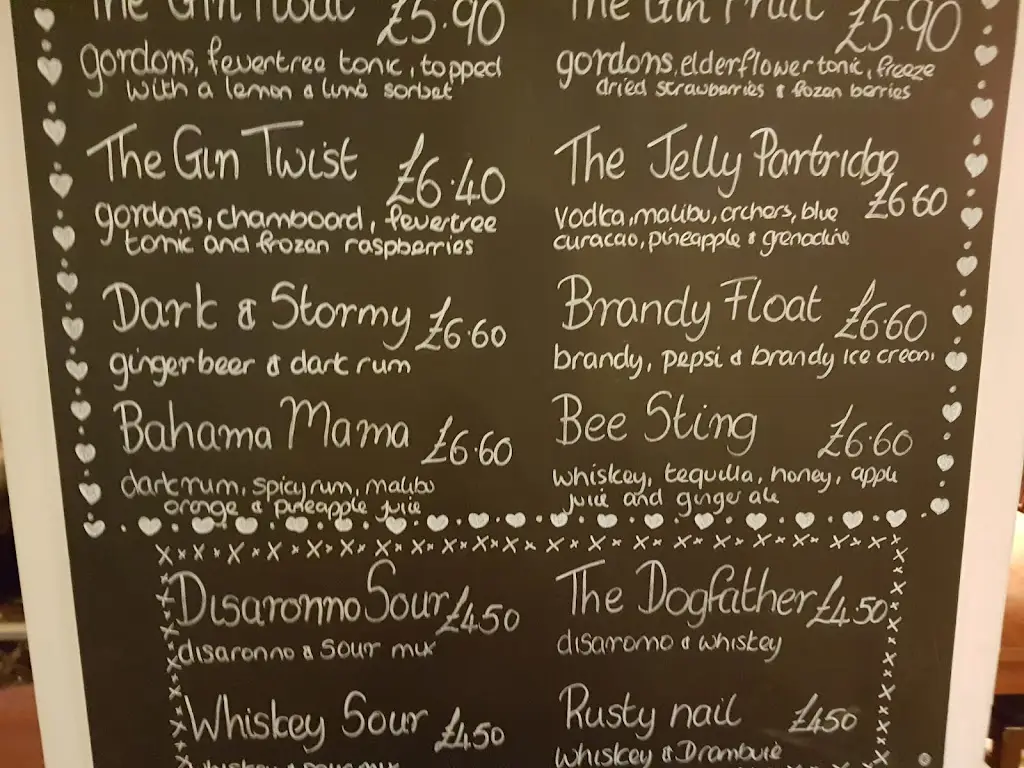 The Gin Float £5.90
gordons, fevertree tonic, topped
with a lemon & lime sorbet
The Gin Twist £6.40
gordons, chamboord, fevertree
tonic and frozen raspberries
Dark & Stormy £6.60
gingerbeer & dark rum
Bahama Mama £6.60
dark rum, spicy rum, malibu
orange & pineapple juice
The Gin Fruit £5.90
gordons, elderflower tonic, freeze
dried strawberries & frozen berries
The Jelly Partridge
£6.60
vodka, malibu, archers, blue
curacao, pineapple & grenadine
Brandy Float £6.60
brandy, pepsi & brandy ice cream
Bee Sting £6.60
whiskey, tequilla, honey, apple
juice and ginger ale
Disaronno Sour £4.50
disaronno & sour mix
Whiskey Sour £4.50
whiskey & sour mix
The Dogfather £4.50
disaronno & whiskey
Rusty nail £4.50
whiskey & Drambuie